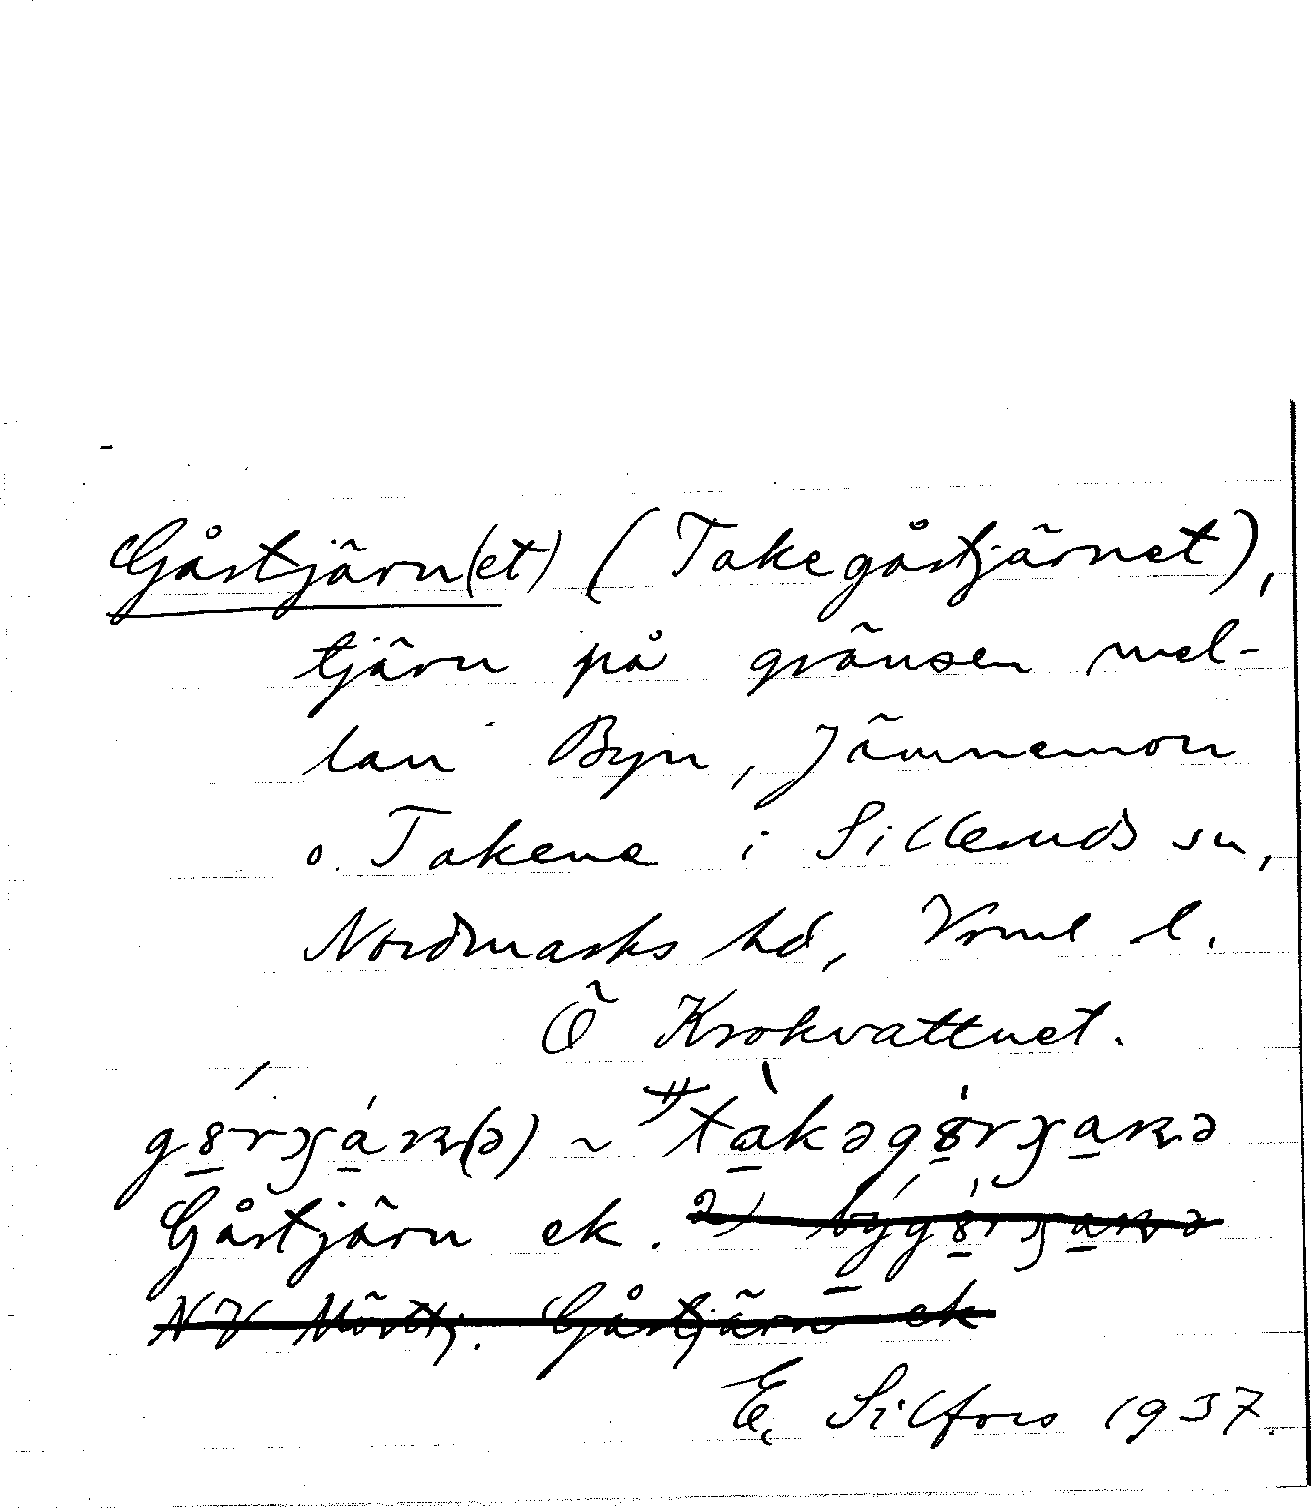 Gåstjärn(et) (Takegåstjärnet),
tjärn på gränsen mel-
lan Byn, Jämnemon
o. Takene i Silleruds sn,
Nordmarks hd, Vrml l.
Ö Krokvattnet.
Gåstjärn ek.
NV Mörttj. Gåstjärn ek
E. Silfors 1937.